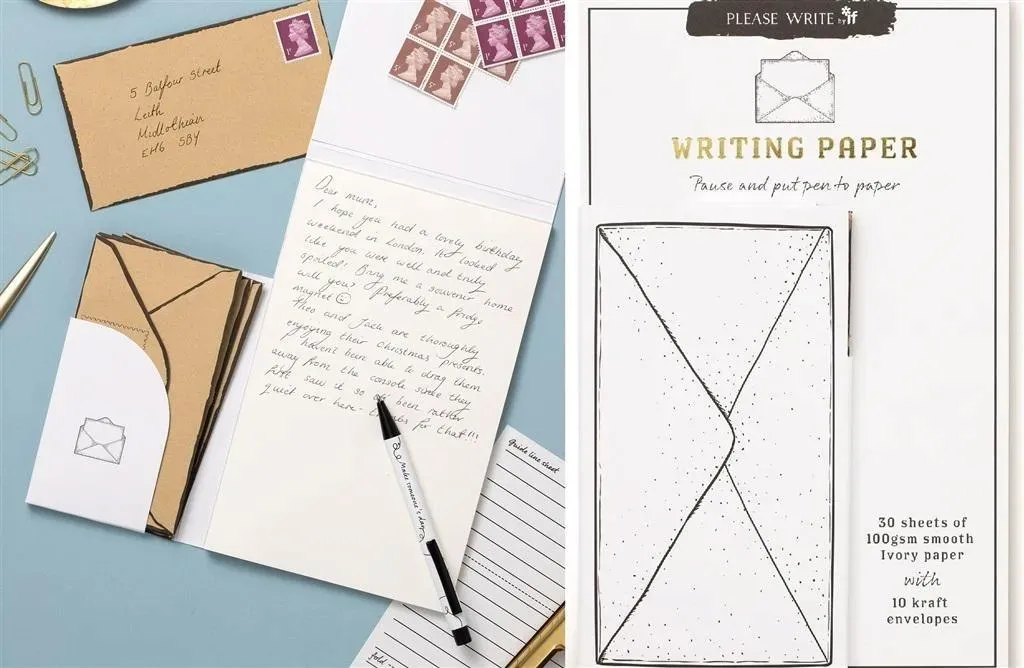 5 Balfour Street
Leith
Midlothian
EH6 5BY
1P
5P
Dear mum,
I hope you had a lovely birthday
weekend in London. It looked
like you were well and truly
spoiled! Bring me a souvenir home
will you? Preferably a fridge
magnet
Theo and Jack are thoroughly
enjoying their Christmas presents.
I haven't been able to drag them
away from the console since they
first saw it so been rather
quiet over here - for that!!!
Make someone's day
guide line sheet
fold
PLEASE WRITE by if
WRITING PAPER
Pause and put pen to paper
30 sheets of
100gsm smooth
Ivory paper
with
10 kraft
envelopes